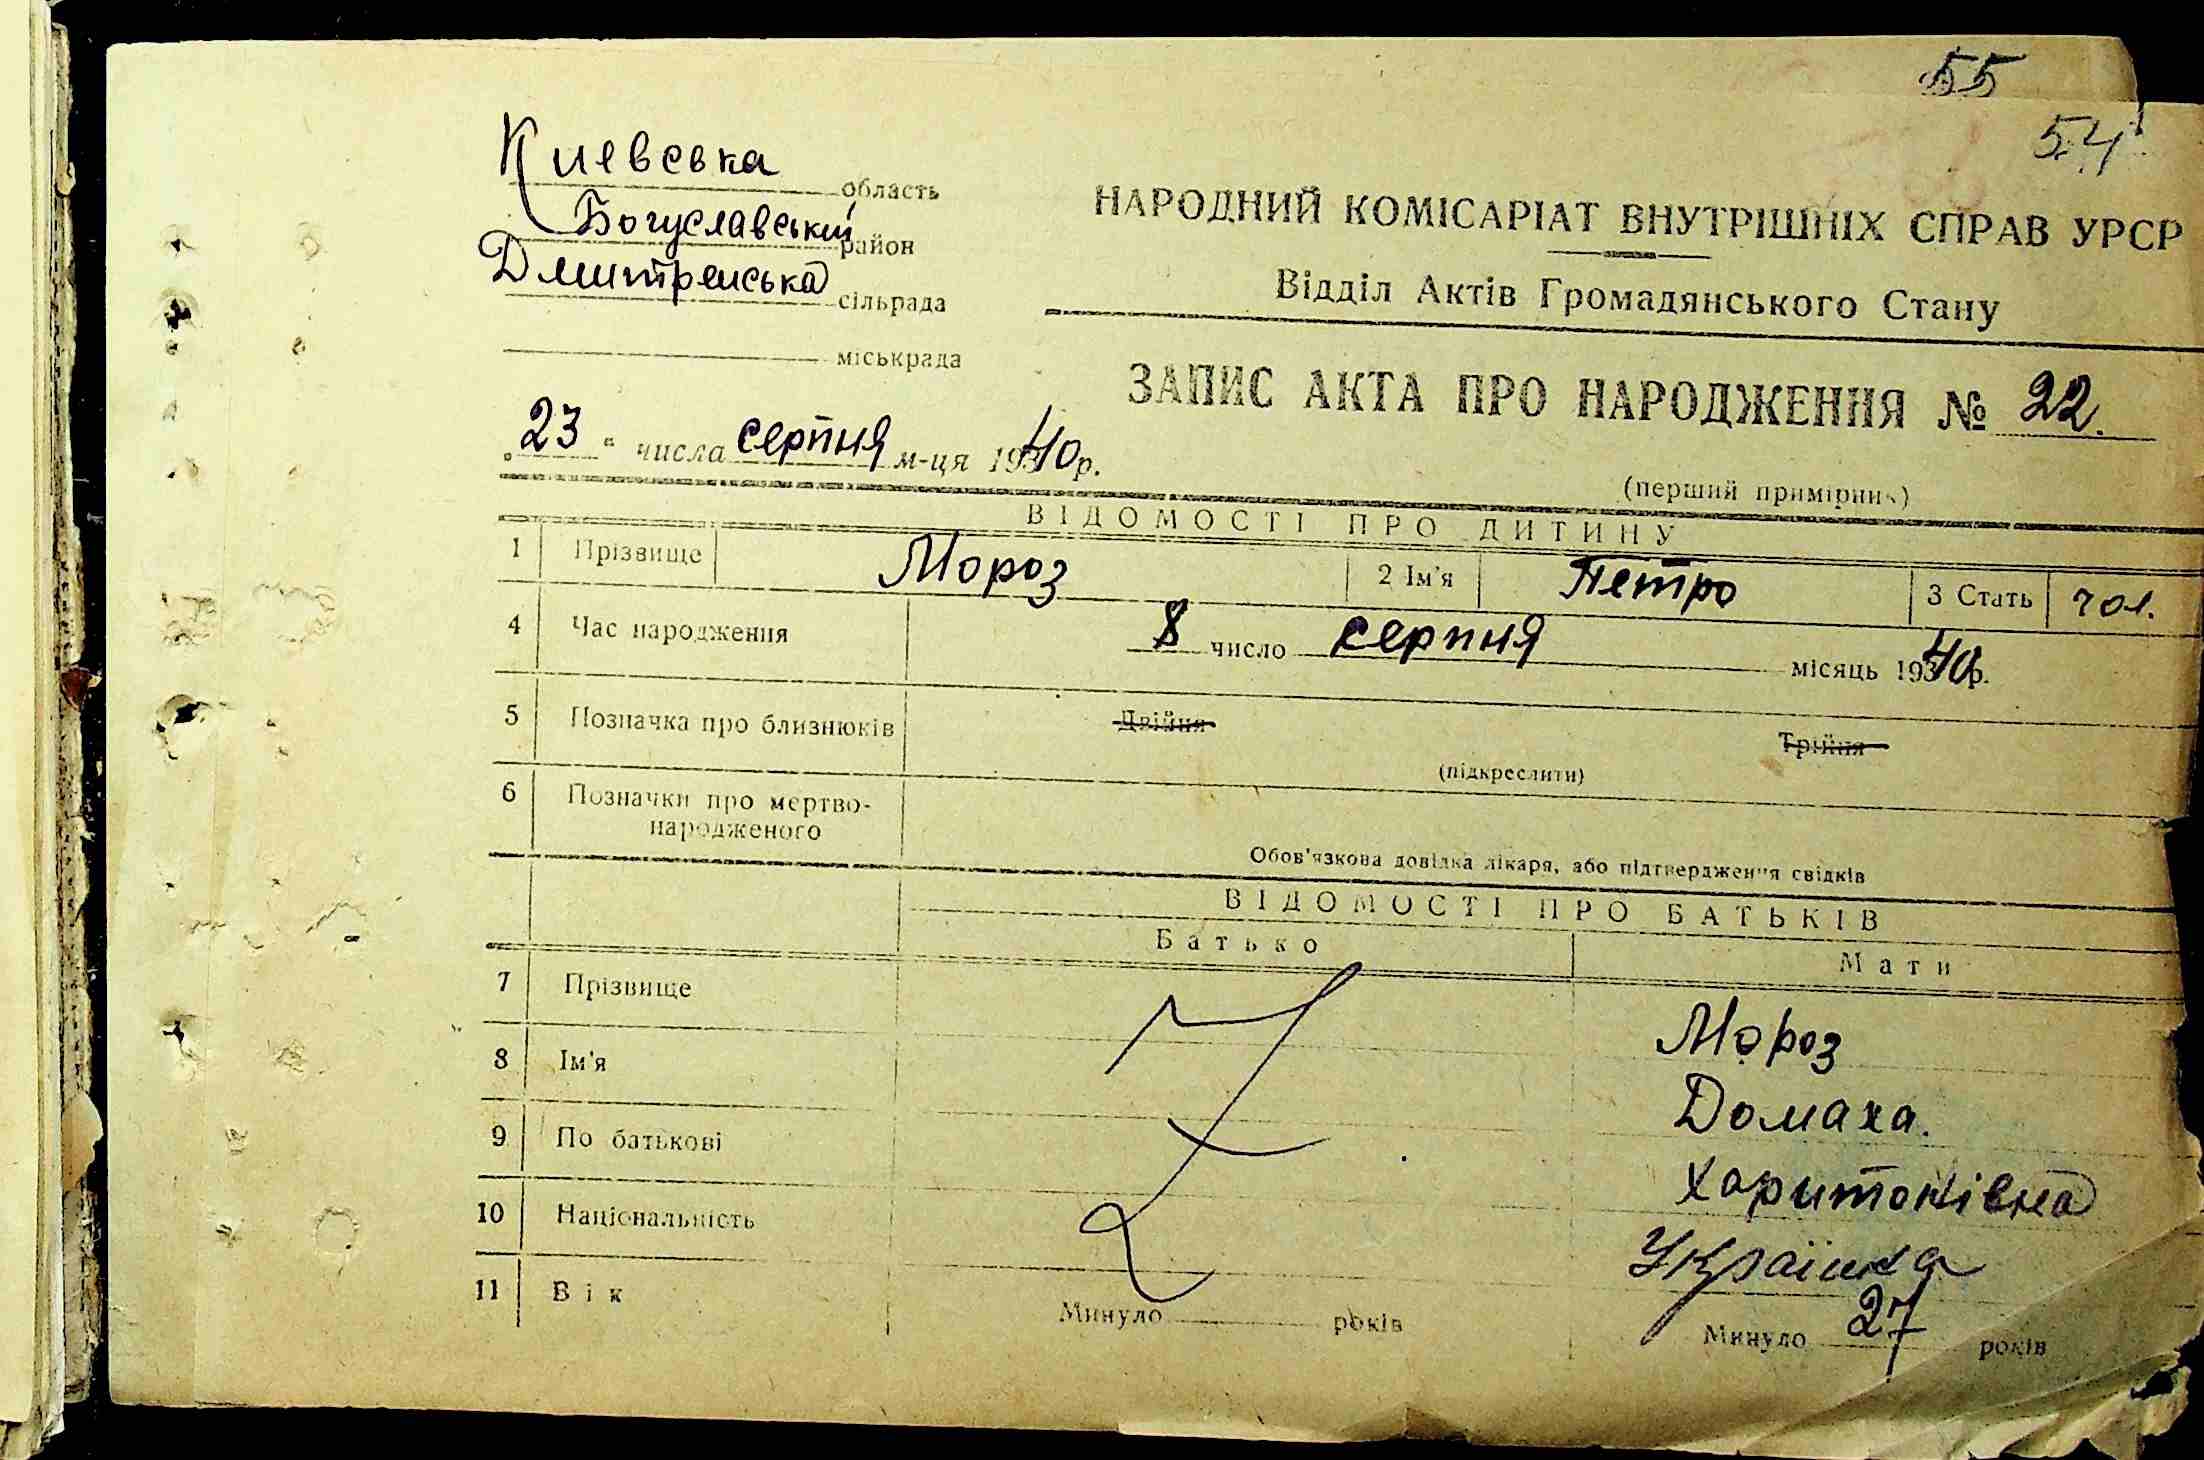 55
54
Киевська область
Богуславський район
Дмитренська сільрада
міськрада
НАРОДНИЙ КОМІСАРІАТ ВНУТРІШНІХ СПРАВ УРСР
Відділ Актів Громадянського Стану
ЗАПИС АКТА ПРО НАРОДЖЕННЯ № 22.
„23“ числа серпня м-ця 1940р.
(перший примірник)
ВІДОМОСТІ ПРО ДИТИНУ
1 Прізвище Мороз 2 Ім'я Петро 3 Стать чол.
4 Час народження 8 число серпня місяць 1940р.
5 Позначка про близнюків Двійня Трійня
(підкреслити)
6 Позначки про мертво-
народженого
Обов'язкова довідка лікаря, або підтвердження свідків
ВІДОМОСТІ ПРО БАТЬКІВ
Батько Мати
7 Прізвище Мороз
8 Ім'я Домаха.
9 По батькові Харитонівна
10 Національність Українка
11 Вік Минуло років Минуло 27 років